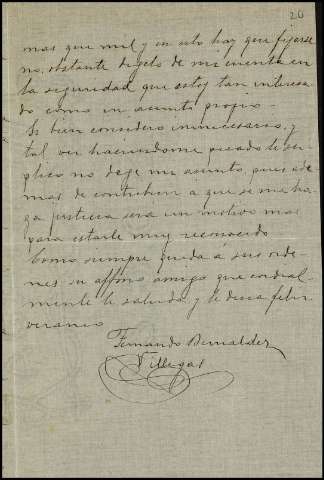 20
mas que mil y en esto hay que fijarse
no, obstante dejelo de mi cuenta en
la seguridad que estoy tan interesa-
do como en asunto propio.
Si bien considero innecesario, y
tal vez haciendome pesado le su-
plico no deje mi asunto, pues ade
mas de contribuir a que se me ha-
ga justicia sera un motivo mas
para estarle muy reconocido
Como siempre queda á sus orde-
nes su affmo amigo que cordial-
mente le saluda y le desea feliz
veraneo
Fernando Bernaldez
Villegas